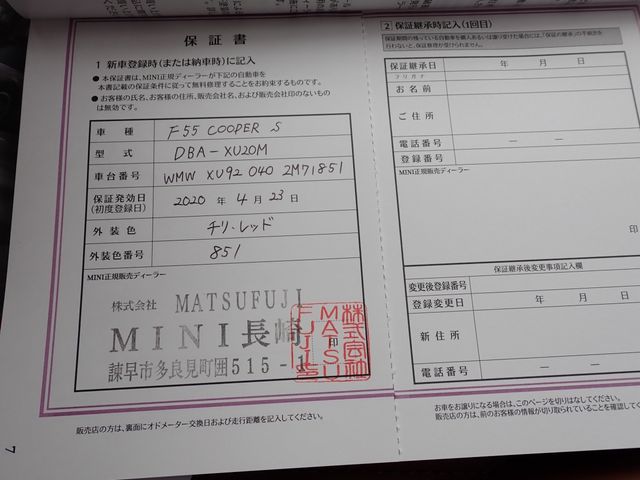 保証書
1 新車登録時(または納車時)に記入
● 本保証書は、MINI正規ディーラーが下記の自動車を
本書記載の保証条件に従って無料修理することをお約束するものです。
● お客様の氏名、お客様の住所、販売会社名、および販売会社印のないもの
は無効です。
車種 F55 COOPER S
型式 DBA-XU20M
車台番号 WMW XU92 040 2M71851
保証発効日 2020 年 4 月 23 日
(初度登録日)
外装色 チリ・レッド
外装色番号 851
MINI正規販売ディーラー
株式会社 MATSUFUJI
MINI長崎 印
諫早市多良見町囲515-1
株式会社
MATSU
FUJI
販売店の方は、裏面にオドメーター交換日および走行距離を記入してください。
7
2 保証継承時記入(1回目)
保証期間の残っている自動車を購入あるいは譲り受けた場合には、「保証の継承」の手続きを
行わないと、保証修理が受けられません。
保証継承日 年 月 日
フリガナ
お名前
ご住所
電話番号 ― ―
登録番号
MINI正規販売ディーラー
印
保証継承後変更事項記入欄
変更後登録番号
登録変更日 年 月 日
新住所
電話番号 ― ―
お車をお譲りになる場合は、このページを切りはなしてください。
販売店の方は、前のお客様の情報が切り取られていることを確認してく